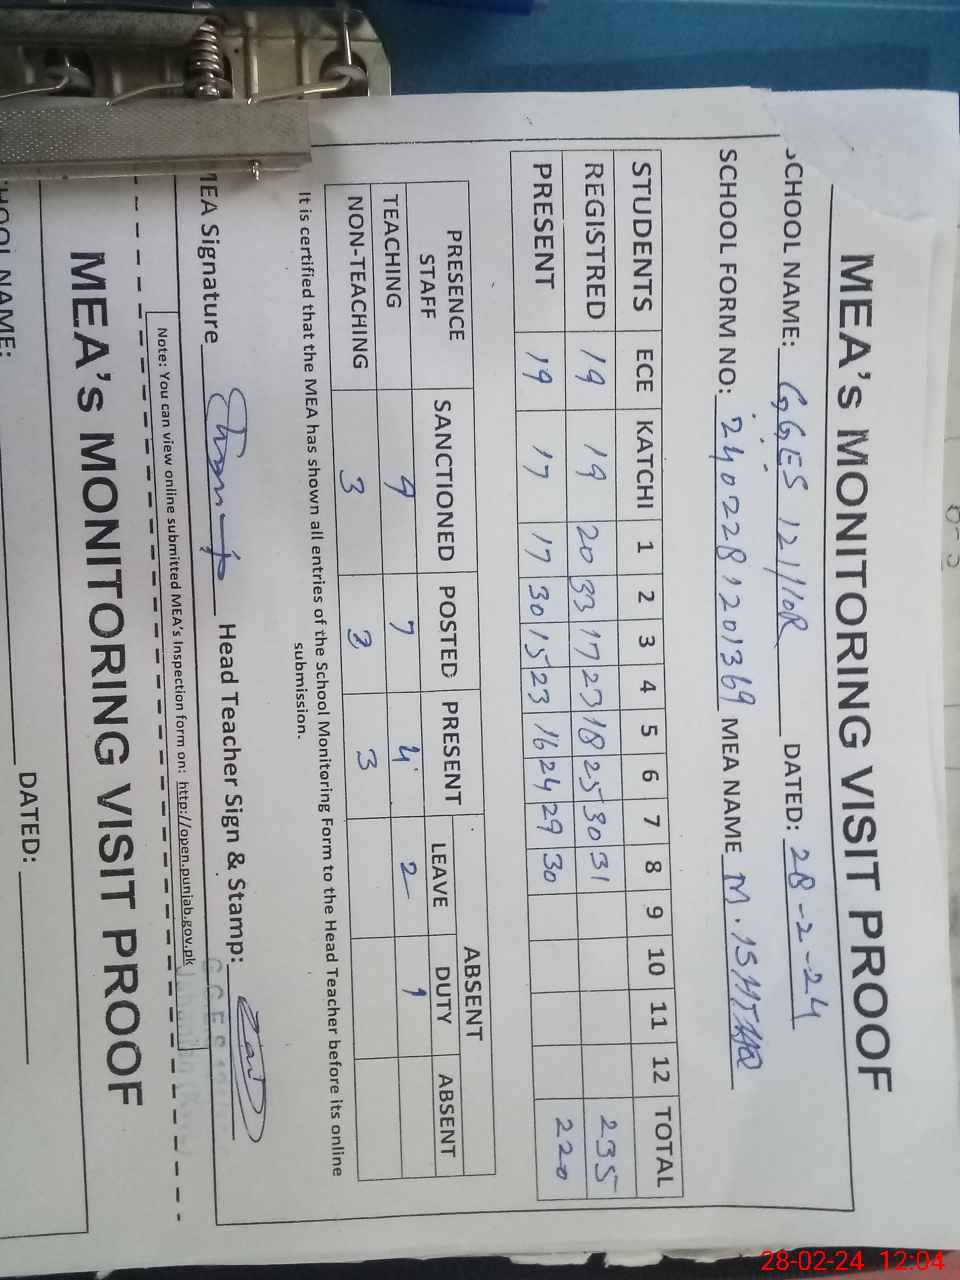 MEA's MONITORING VISIT PROOF
SCHOOL NAME: GGES 121/10R DATED: 28-2-24
SCHOOL FORM NO: 24022812201369 MEA NAME M.
STUDENTS ECE KATCHI 1 2 3 4 5 6 7 8 9 10 11 12 TOTAL
REGISTRED 19 19 20 33 17 23 18 25 30 31 235
PRESENT 19 17 17 30 15 23 16 24 29 30 220
PRESENCE STAFF SANCTIONED POSTED PRESENT ABSENT
LEAVE DUTY ABSENT
TEACHING 9 7 4 2 1
NON-TEACHING 3 3 3
It is certified that the MEA has shown all entries of the School Monitoring Form to the Head Teacher before its online
submission.
MEA Signature Head Teacher Sign & Stamp:
Note: You can view online submitted MEA's Inspection form on: http://open.punjab.gov.pk
MEA's MONITORING VISIT PROOF
SCHOOL NAME: DATED:
28-02-24 12:04